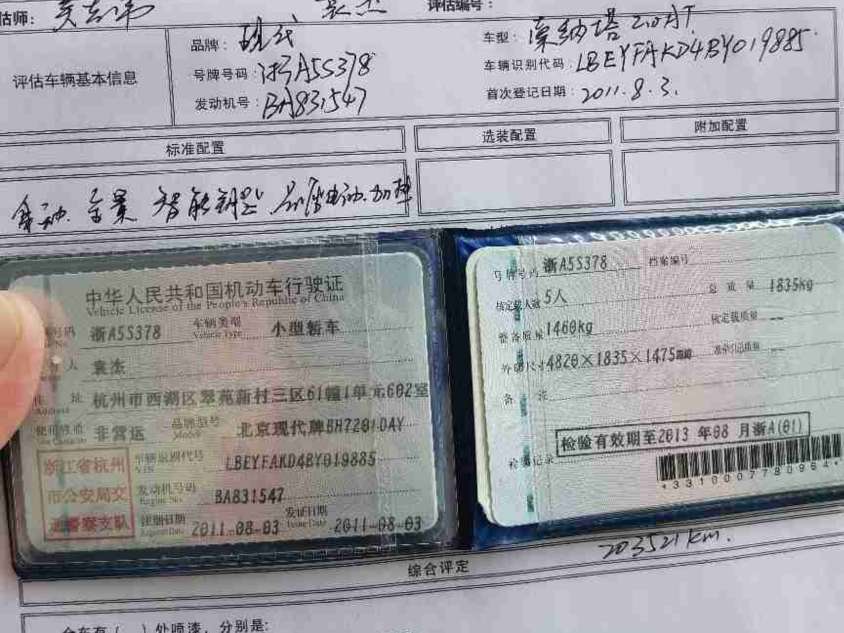 估师： 评估编号：
品牌：现代 车型：索纳塔 2.0AT
评估车辆基本信息 号牌号码：浙A5S378 车辆识别代码：LBEYFAKD4BY019885
发动机号：BA831547 首次登记日期：2011.8.3.
标准配置 选装配置 附加配置
全景 智能钥匙 加热
中华人民共和国机动车行驶证
Vehicle License of the People's Republic of China
号码 浙A5S378 车辆类型 小型轿车
Vehicle Type
人 袁杰
住 址 杭州市西湖区翠苑新村三区61幢1单元602室
Address
使用性质 非营运 品牌型号 北京现代牌BH7201DAY
Use Character Model
浙江省杭州 车辆识别代号 LBEYFAKD4BY019885
VIN
市公安局交 发动机号码 BA831547
Engine No.
通警察支队 注册日期 2011-08-03 发证日期 2011-08-03
Register Date Issue Date
号牌号码 浙A5S378 档案编号
核定载人数 5人 总质量 1835kg
整备质量 1460kg 核定载质量 --
外廓尺寸 4820×1835×1475mm 准牵引总质量 --
备 注
检验有效期至2013年08月浙A(01)
检验记录
*3310007780964*
203521km.
综合评定
全车有（ ）处喷漆，分别是：